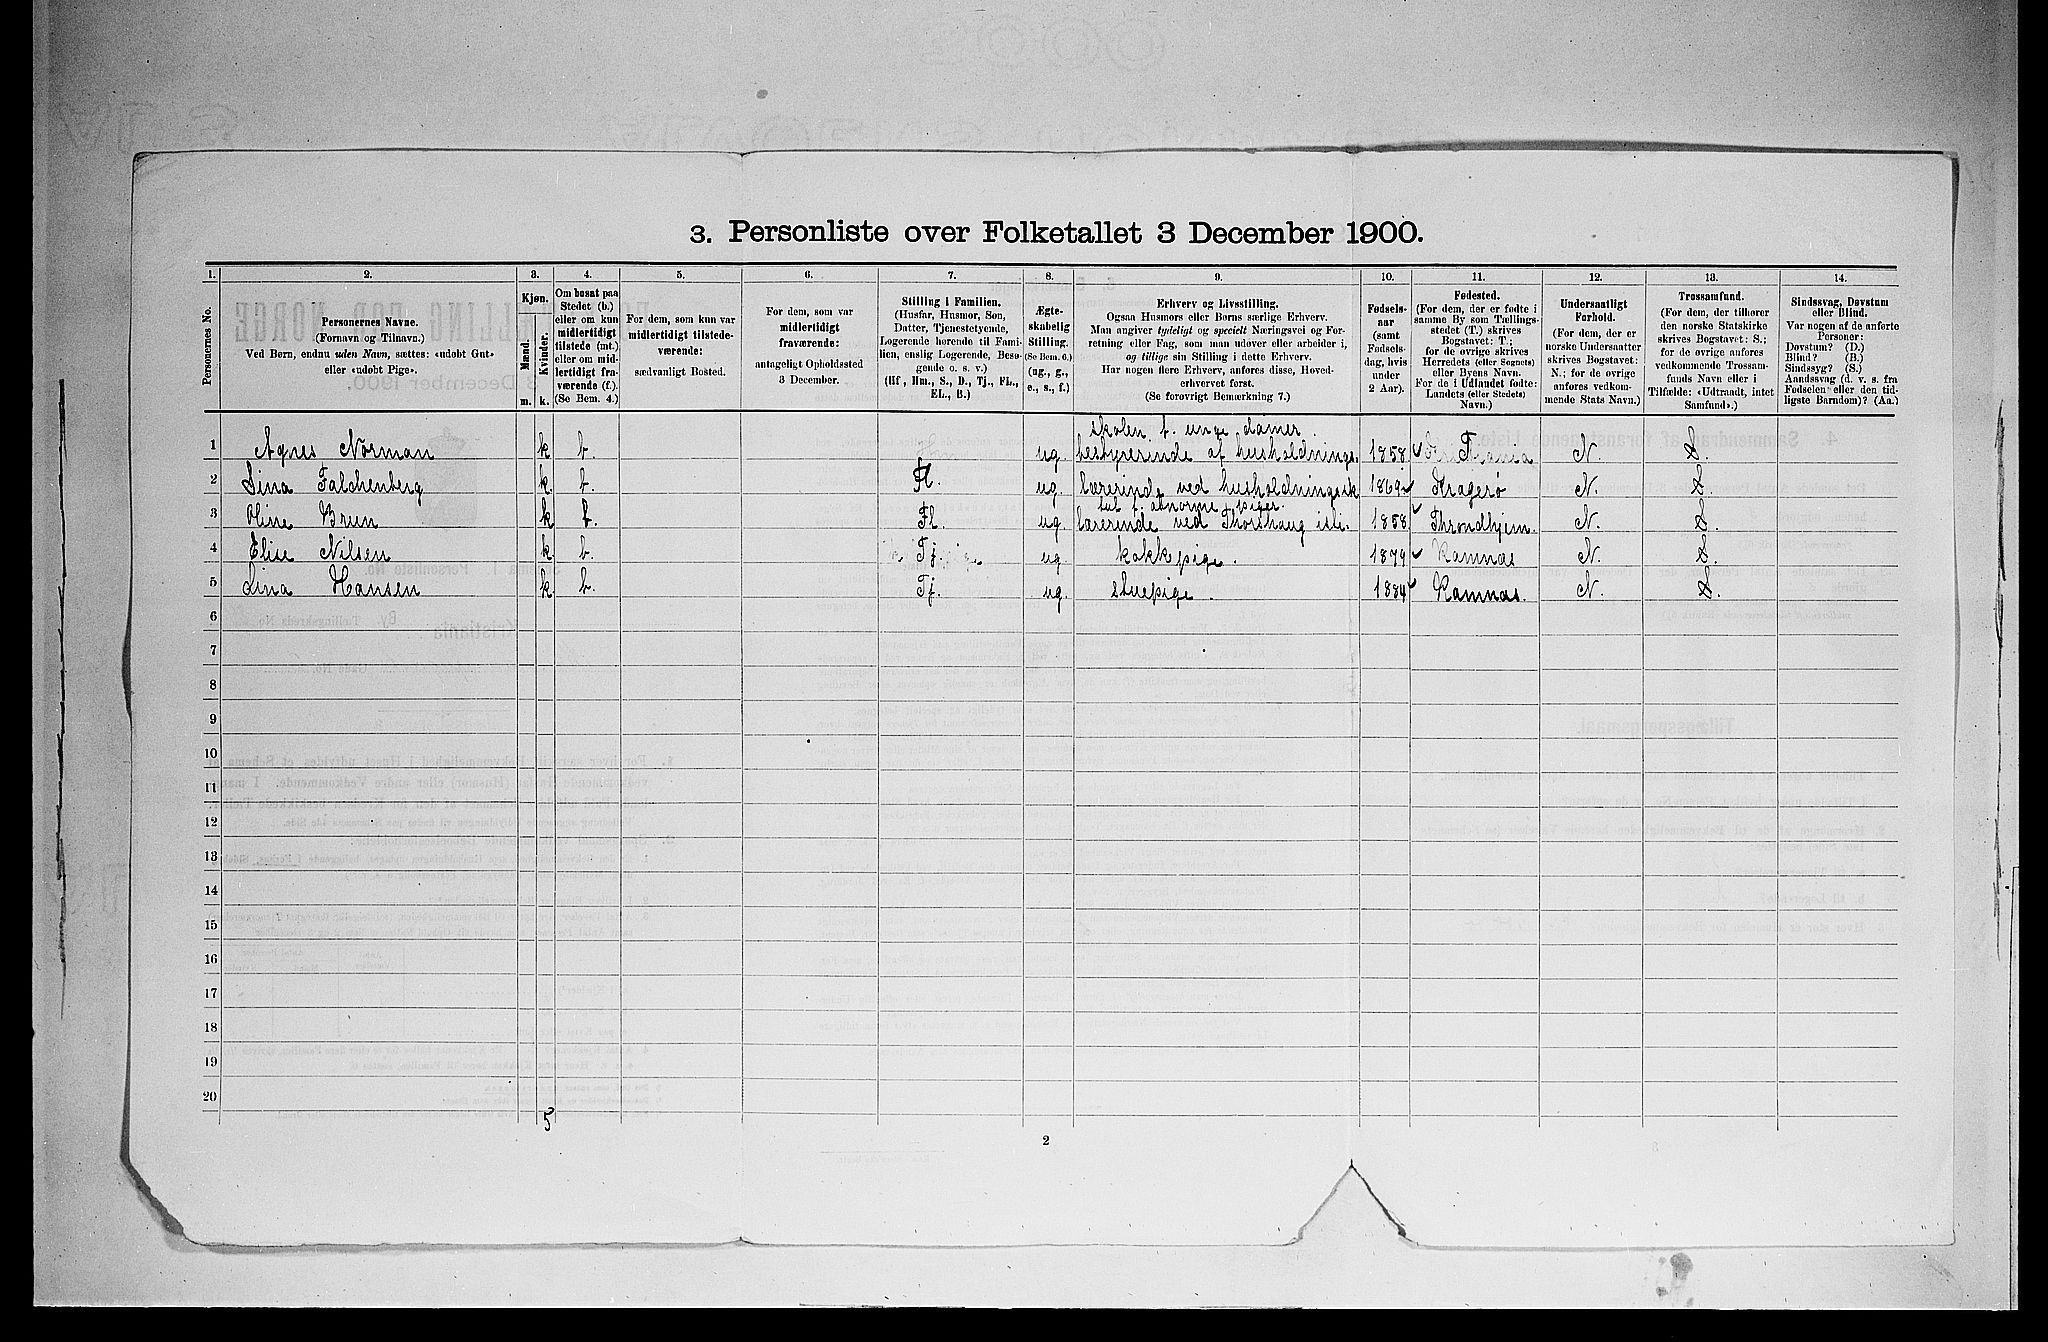 3. Personliste over Folketallet 3 December 1900.
1. 2. 3. 4. 5. 6. 7. 8. 9. 10. 11. 12. 13. 14.
Personernes No.
Personernes Navne.
(Fornavn og Tilnavn.)
Ved Børn, endnu uden Navn, sættes: «udøbt Gut»
eller «udøbt Pige».
Kjøn.
Mænd.
Kvinder.
m. k.
Om bosat paa
Stedet (b.)
eller om kun
midlertidigt
tilstede (mt.)
eller om mid-
lertidigt fra-
værende (f.).
(Se Bem. 4.)
For dem, som kun var
midlertidigt tilstede-
værende:
sædvanligt Bosted.
For dem, som var
midlertidigt
fraværende:
antageligt Opholdssted
3 December.
Stilling i Familien.
(Husfar, Husmor, Søn,
Datter, Tjenestetyende,
Logerende hørende til Fami-
lien, enslig Logerende, Besø-
gende o. s. v.)
(Hf, Hm., S., D., Tj., FL.,
EL., B.)
Ægte-
skabelig
Stilling.
(Se Bem. 6.)
(ug., g.,
e., s., f.)
Erhverv og Livsstilling.
Ogsaa Husmors eller Børns særlige Erhverv.
Man angiver tydeligt og specielt Næringsvei og For-
retning eller Fag, som man udøver eller arbeider i,
og tillige sin Stilling i dette Erhverv.
Har nogen flere Erhverv, anføres disse, Hoved-
erhvervet først.
(Se forøvrigt Bemærkning 7.)
Fødsels-
aar
(samt
Fødsels-
dag, hvis
under
2 Aar).
Fødested.
(For dem, der er fødte i
samme By som Tællings-
stedet (T.) skrives
Bogstavet: T.;
for de øvrige skrives
Herredets (eller Sognets)
eller Byens Navn.
For de i Udlandet fødte:
Landets (eller Stedets)
Navn.)
Undersaatligt
Forhold.
(For dem, der er
norske Undersaatter
skrives Bogstavet:
N.; for de øvrige
anføres vedkom-
mende Stats Navn.)
Trossamfund.
(For dem, der tilhører
den norske Statskirke
skrives Bogstavet: S.;
for de øvrige anføres
vedkommende Trossam-
funds Navn eller i
Tilfælde: «Udtraadt, intet
Samfund».)
Sindssvag, Døvstum
eller Blind.
Var nogen af de anførte
Personer:
Døvstum? (D.)
Blind? (B.)
Sindssyg? (S.)
Aandssvag (d. v. s. fra
Fødselen eller den tid-
ligste Barndom)? (Aa.)
skolen f. unge damer
1 Agnes Norman k b. ug. bestyrerinde af husholdnings. 1858 T N. S.
2 Lina Falchenberg k. b. Fl. ug. lærerinde ved husholdningssk 1869 Kragerø N. S.
tut f. abnorme piger.
3 Oline Brun k b. Fl. ug. lærerinde ved Thorshaug insti- 1858 Throndhjem. N. S.
4 Elise Nilsen k b. Tj. ug. kokkepige. 1879 Ramnæs N. S.
5 Lina Hansen k b. Tj. ug. stuepige. 1884 Ramnæs. N. S.
6
7
8
9
10
11
12
13
14
15
16
17
18
19
20
5
2